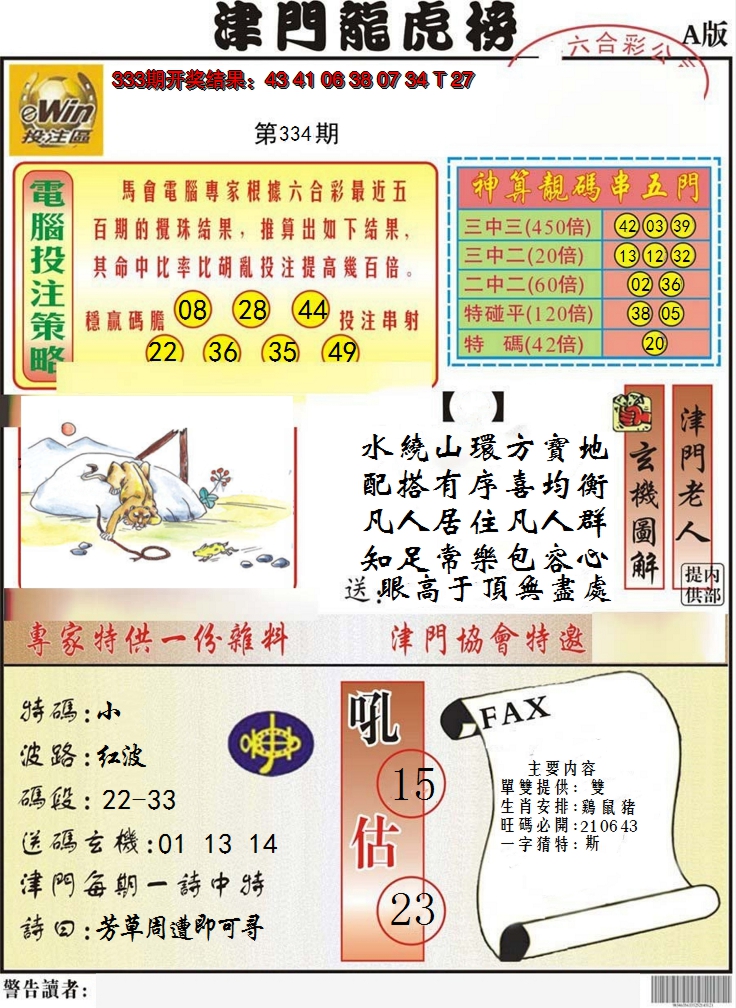 津門龍虎榜
A版
六合彩公
333期开奖结果：43 41 06 38 07 34 T 27
eWin
投注區
第334期
電腦投注策略
馬會電腦專家根據六合彩最近五
百期的攪珠结果，推算出如下结果，
其命中比率比胡亂投注提高幾百倍。
穩贏碼膽 08 28 44 投注串射
22 36 35 49
神算靚碼串五門
三中三(450倍) 42 03 39
三中二(20倍) 13 12 32
二中二(60倍) 02 36
特碰平(120倍) 38 05
特 碼(42倍) 20
【 】
水繞山環方寶地
配搭有序喜均衡
凡人居住凡人群
知足常樂包容心
送:眼高于頂無盡處
玄機圖解
津門老人
内部提供
專家特供一份雜料
津門協會特邀
特碼:小
波路:红波
碼段:22-33
送碼玄機:01 13 14
津門每期一詩中特
詩曰:芳草周遭即可寻
吼
15
估
23
FAX
主要内容
單雙提供：雙
生肖安排:鷄鼠豬
旺碼必開:210643
一字猜特:斯
警告讀者：